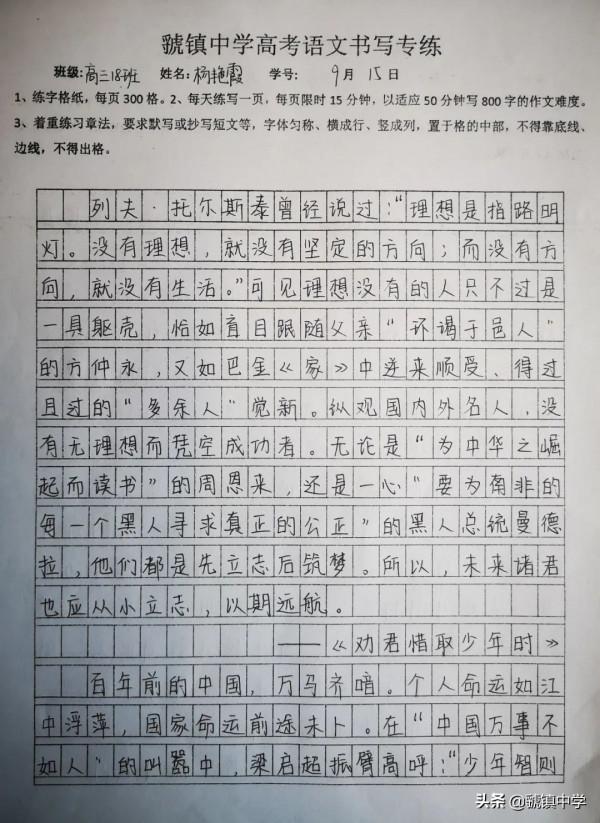 虢镇中学高考语文书写专练
班级:高三18班 姓名:杨艳霞 学号: 9月15日
1、练字格纸，每页300格。2、每天练写一页，每页限时15分钟，以适应50分钟写800字的作文难度。
3、着重练习章法，要求默写或抄写短文等，字体匀称、横成行、竖成列，置于格的中部，不得靠底线、
边线，不得出格。
列夫·托尔斯泰曾经说过:“理想是指路明
灯。没有理想，就没有坚定的方向；而没有方
向，就没有生活。”可见理想没有的人只不过是
一具躯壳，恰如盲目跟随父亲“环谒于邑人”
的方仲永，又如巴金《家》中逆来顺受、得过
且过的“多余人”觉新。纵观国内外名人，没
有无理想而凭空成功者。无论是“为中华之崛
起而读书”的周恩来，还是一心“要为南非的
每一个黑人寻求真正的公正”的黑人总统曼德
拉，他们都是先立志后筑梦。所以，未来诸君
也应从小立志，以期远航。
——《劝君惜取少年时》
百年前的中国，万马齐喑。个人命运如江
中浮萍，国家命运前途未卜。在“中国万事不
如人”的叫嚣中，梁启超振臂高呼:“少年智则
头条@虢镇中学